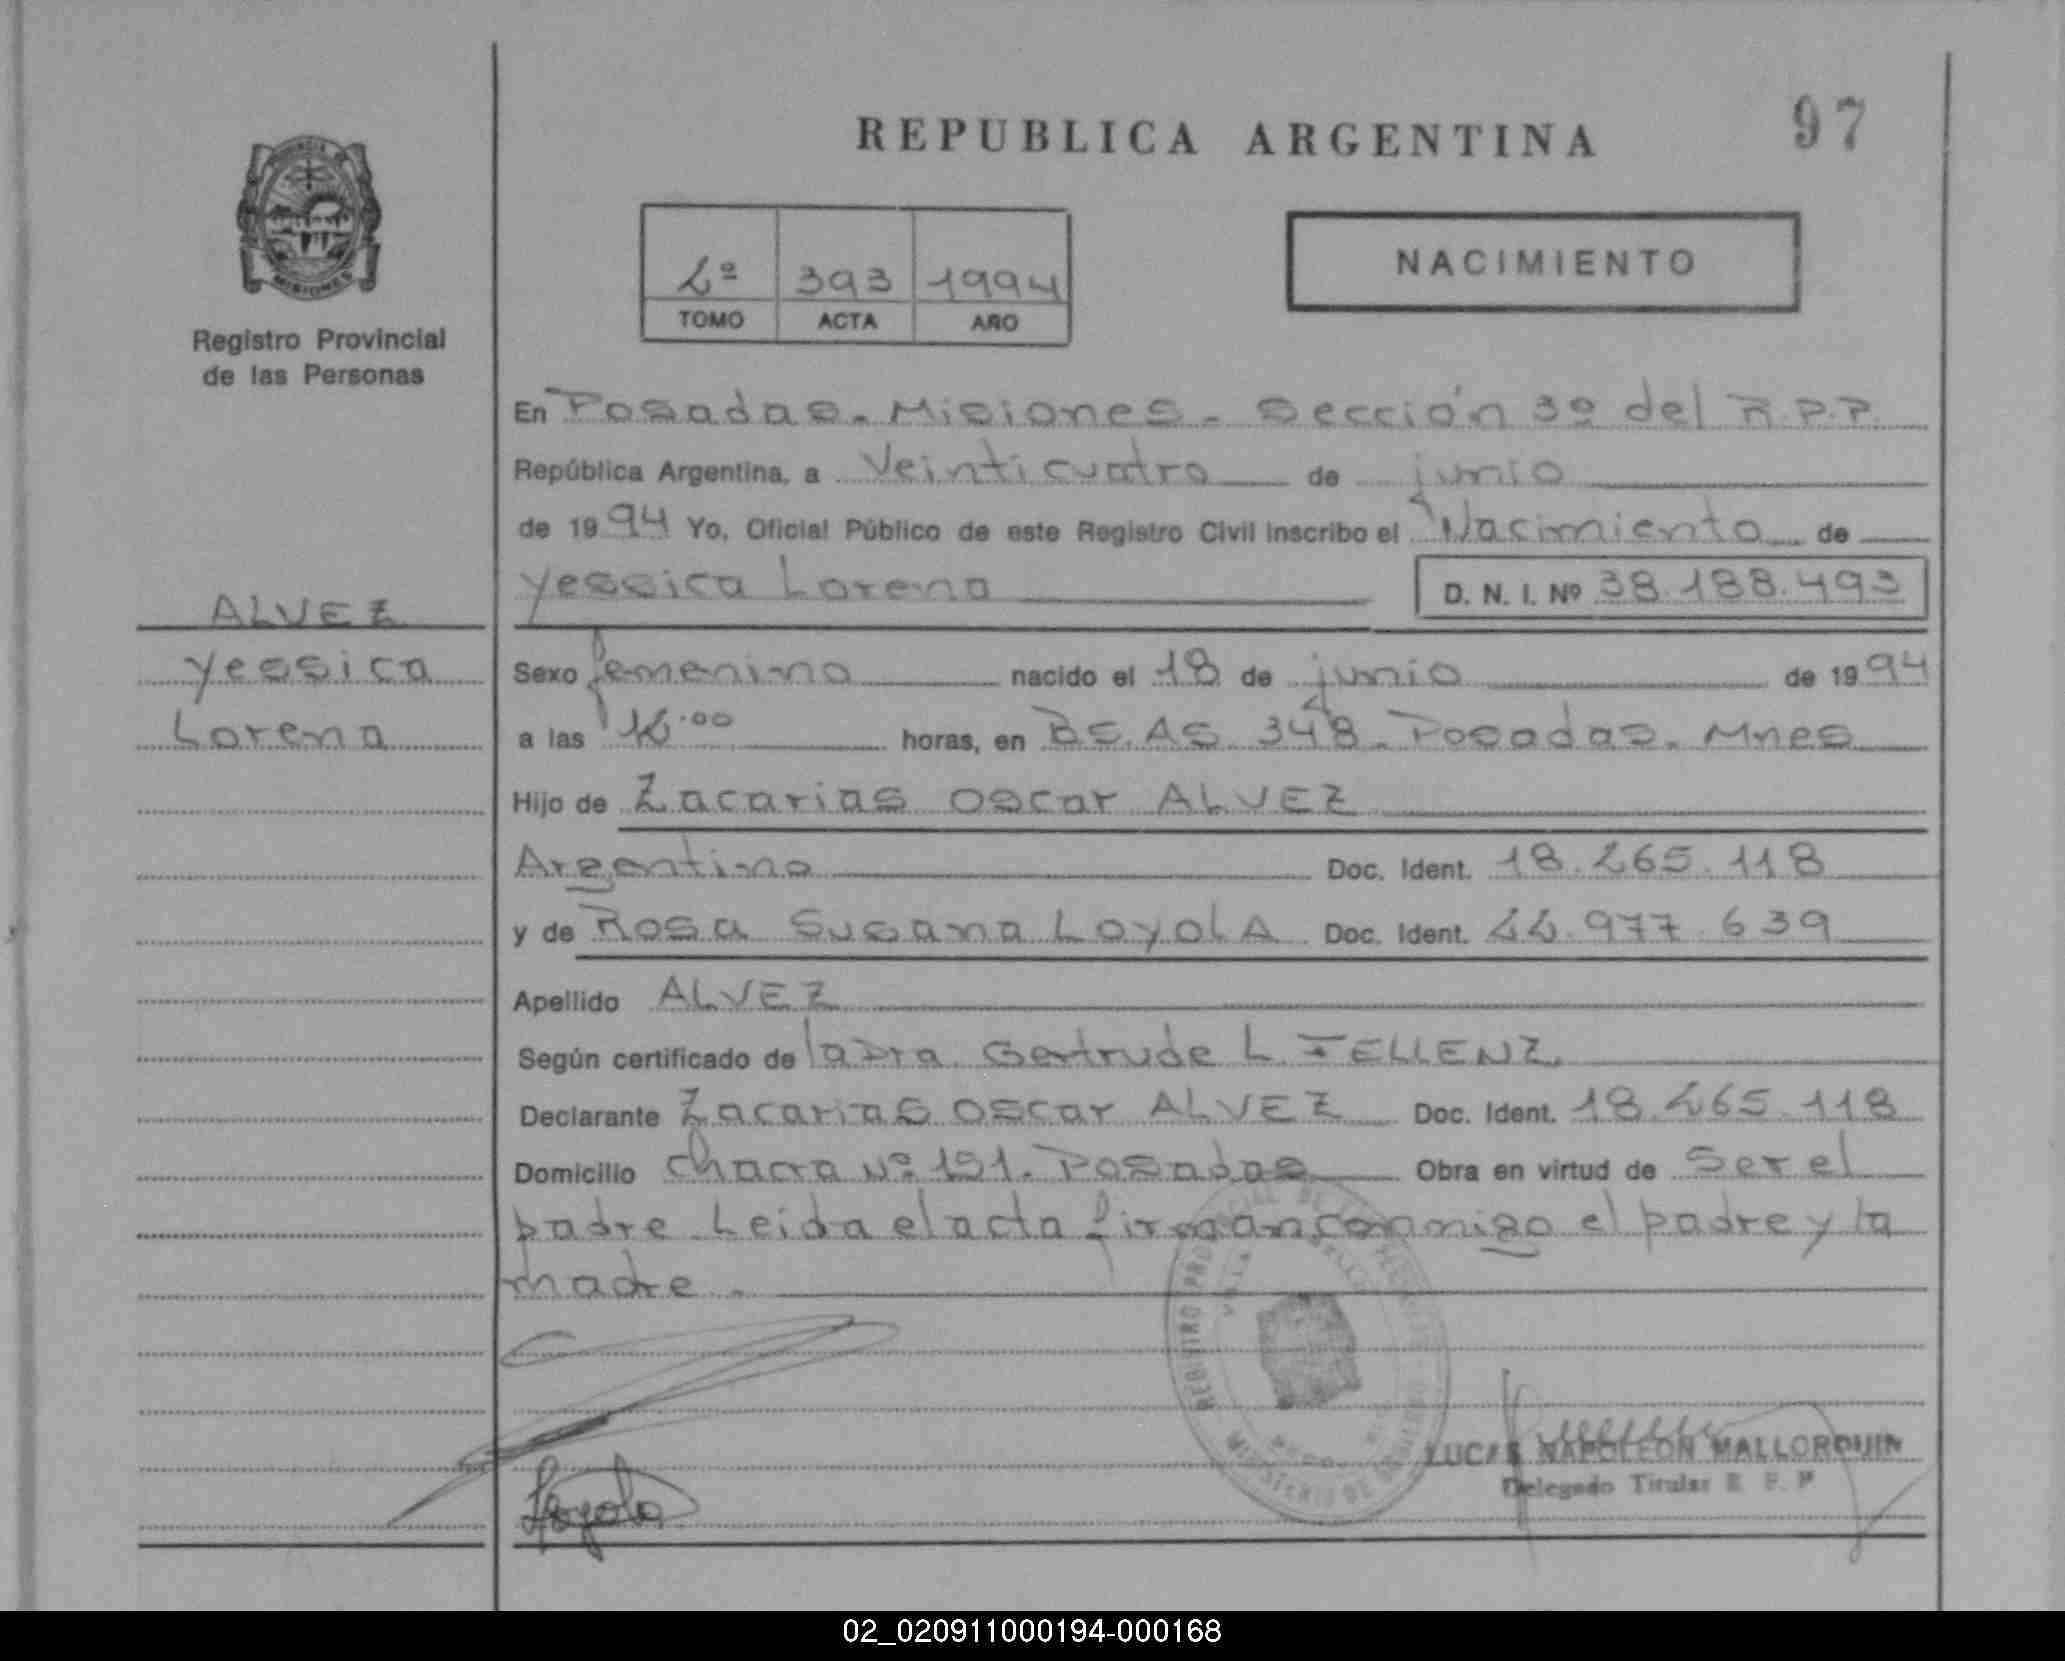 REPUBLICA ARGENTINA
97
2º 393 1994
TOMO ACTA AÑO
NACIMIENTO
Registro Provincial
de las Personas
En Posadas - Misiones - Sección 3º del R.P.P.
República Argentina, a Veinticuatro de junio
de 1994 Yo, Oficial Público de este Registro Civil inscribo el Nacimiento de
Yessica Lorena D. N. I. Nº 38.188.493
ALVEZ
Yessica
Lorena
Sexo femenino nacido el 18 de junio de 1994
a las 16.00 horas, en BS.AS 348 - Posadas - Mnes
Hijo de Zacarias Oscar ALVEZ
Argentina Doc. Ident. 18.265.118
y de Rosa Susana LoyolA Doc. Ident. 22.977.639
Apellido ALVEZ
Según certificado de la Dra Gertrude L. FELLENZ
Declarante Zacarias Oscar ALVEZ Doc. Ident. 18.265.118
Domicilio Chacra Nº 191. Posadas Obra en virtud de Ser el
padre. Leida el acta firman conmigo el padre y la
madre.
Loyola
LUCAS NAPOLEON MALLORQUIN
Delegado Titular
02_020911000194-000168